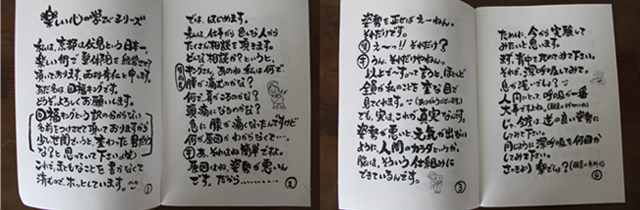 楽しい心の学びシリーズ
私は、京都は伏見という日本一
楽しい街で整体院を経営させて
頂いております、西村
と申します。
あだ名は回福キングです。
どうぞよろしくお願いします。
回福キングという訳の分からない
名前をつけさせて頂いておりますから
少しで
変わった男だろう
な?と思っていて下さい
これで、まともなことを書かなくて
済むので、ホッとしています。
①
では、はじめます。
私は、仕事がら色んな人から
たくさん相談を頂きます。
どんな相談か?というと
キングさん、あのね私は何で
腰が痛むのかな?
何で肩がこるのかな?
頭痛になるのかな?
急に膝が痛くなったんですけど
何が原因かわからなくて…。
あ、それね簡単ですよ。
原因はね、姿勢が悪いん
です。だから………
②
姿勢を正せばえーねん。
それだけです。
え〜!!それだけ?
うん。それだけやねん。
以上です…って言うと、ほとんど
全員が私のことを変な目で
見てきます。
でも、実は、これが真実なんです。
姿勢が悪いと元気が出ない
ように人間のカラダというか、
脳は、そういう仕組みに
できているんです。
③
ために、今から実験して
みたいと思います。
まず、背中を丸めてみて下さい。
それで、深呼吸してみて。
息が浅いでしょ?
人間にとって呼吸が一番
大事ですよね。
じゃ今度は逆の良い姿勢に
してみて下さい。
同じように深呼吸を何回か
してみて下さい。
さっきより楽でしょ?
④